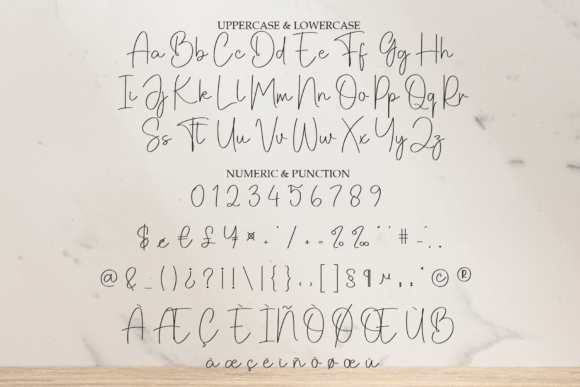 UPPERCASE & LOWERCASE
Aa Bb Cc Dd Ee Ff Gg Hh
Ii Jj Kk Ll Mm Nn Oo Pp Qq Rr
Ss Tt Uu Vv Ww Xx Yy Zz
NUMERIC & PUNCTION
0 1 2 3 4 5 6 7 8 9
$ ¢ € £ ¥ ¤ + / + = % ‰ # -
@ & _ ( ) ¿ ? ¡ ! \ | { } [ ] § ¶ µ © ®
À Æ Ç È Ì Ñ Ò Ø Œ Ù B
à æ ç è ì ñ ò ø œ ù